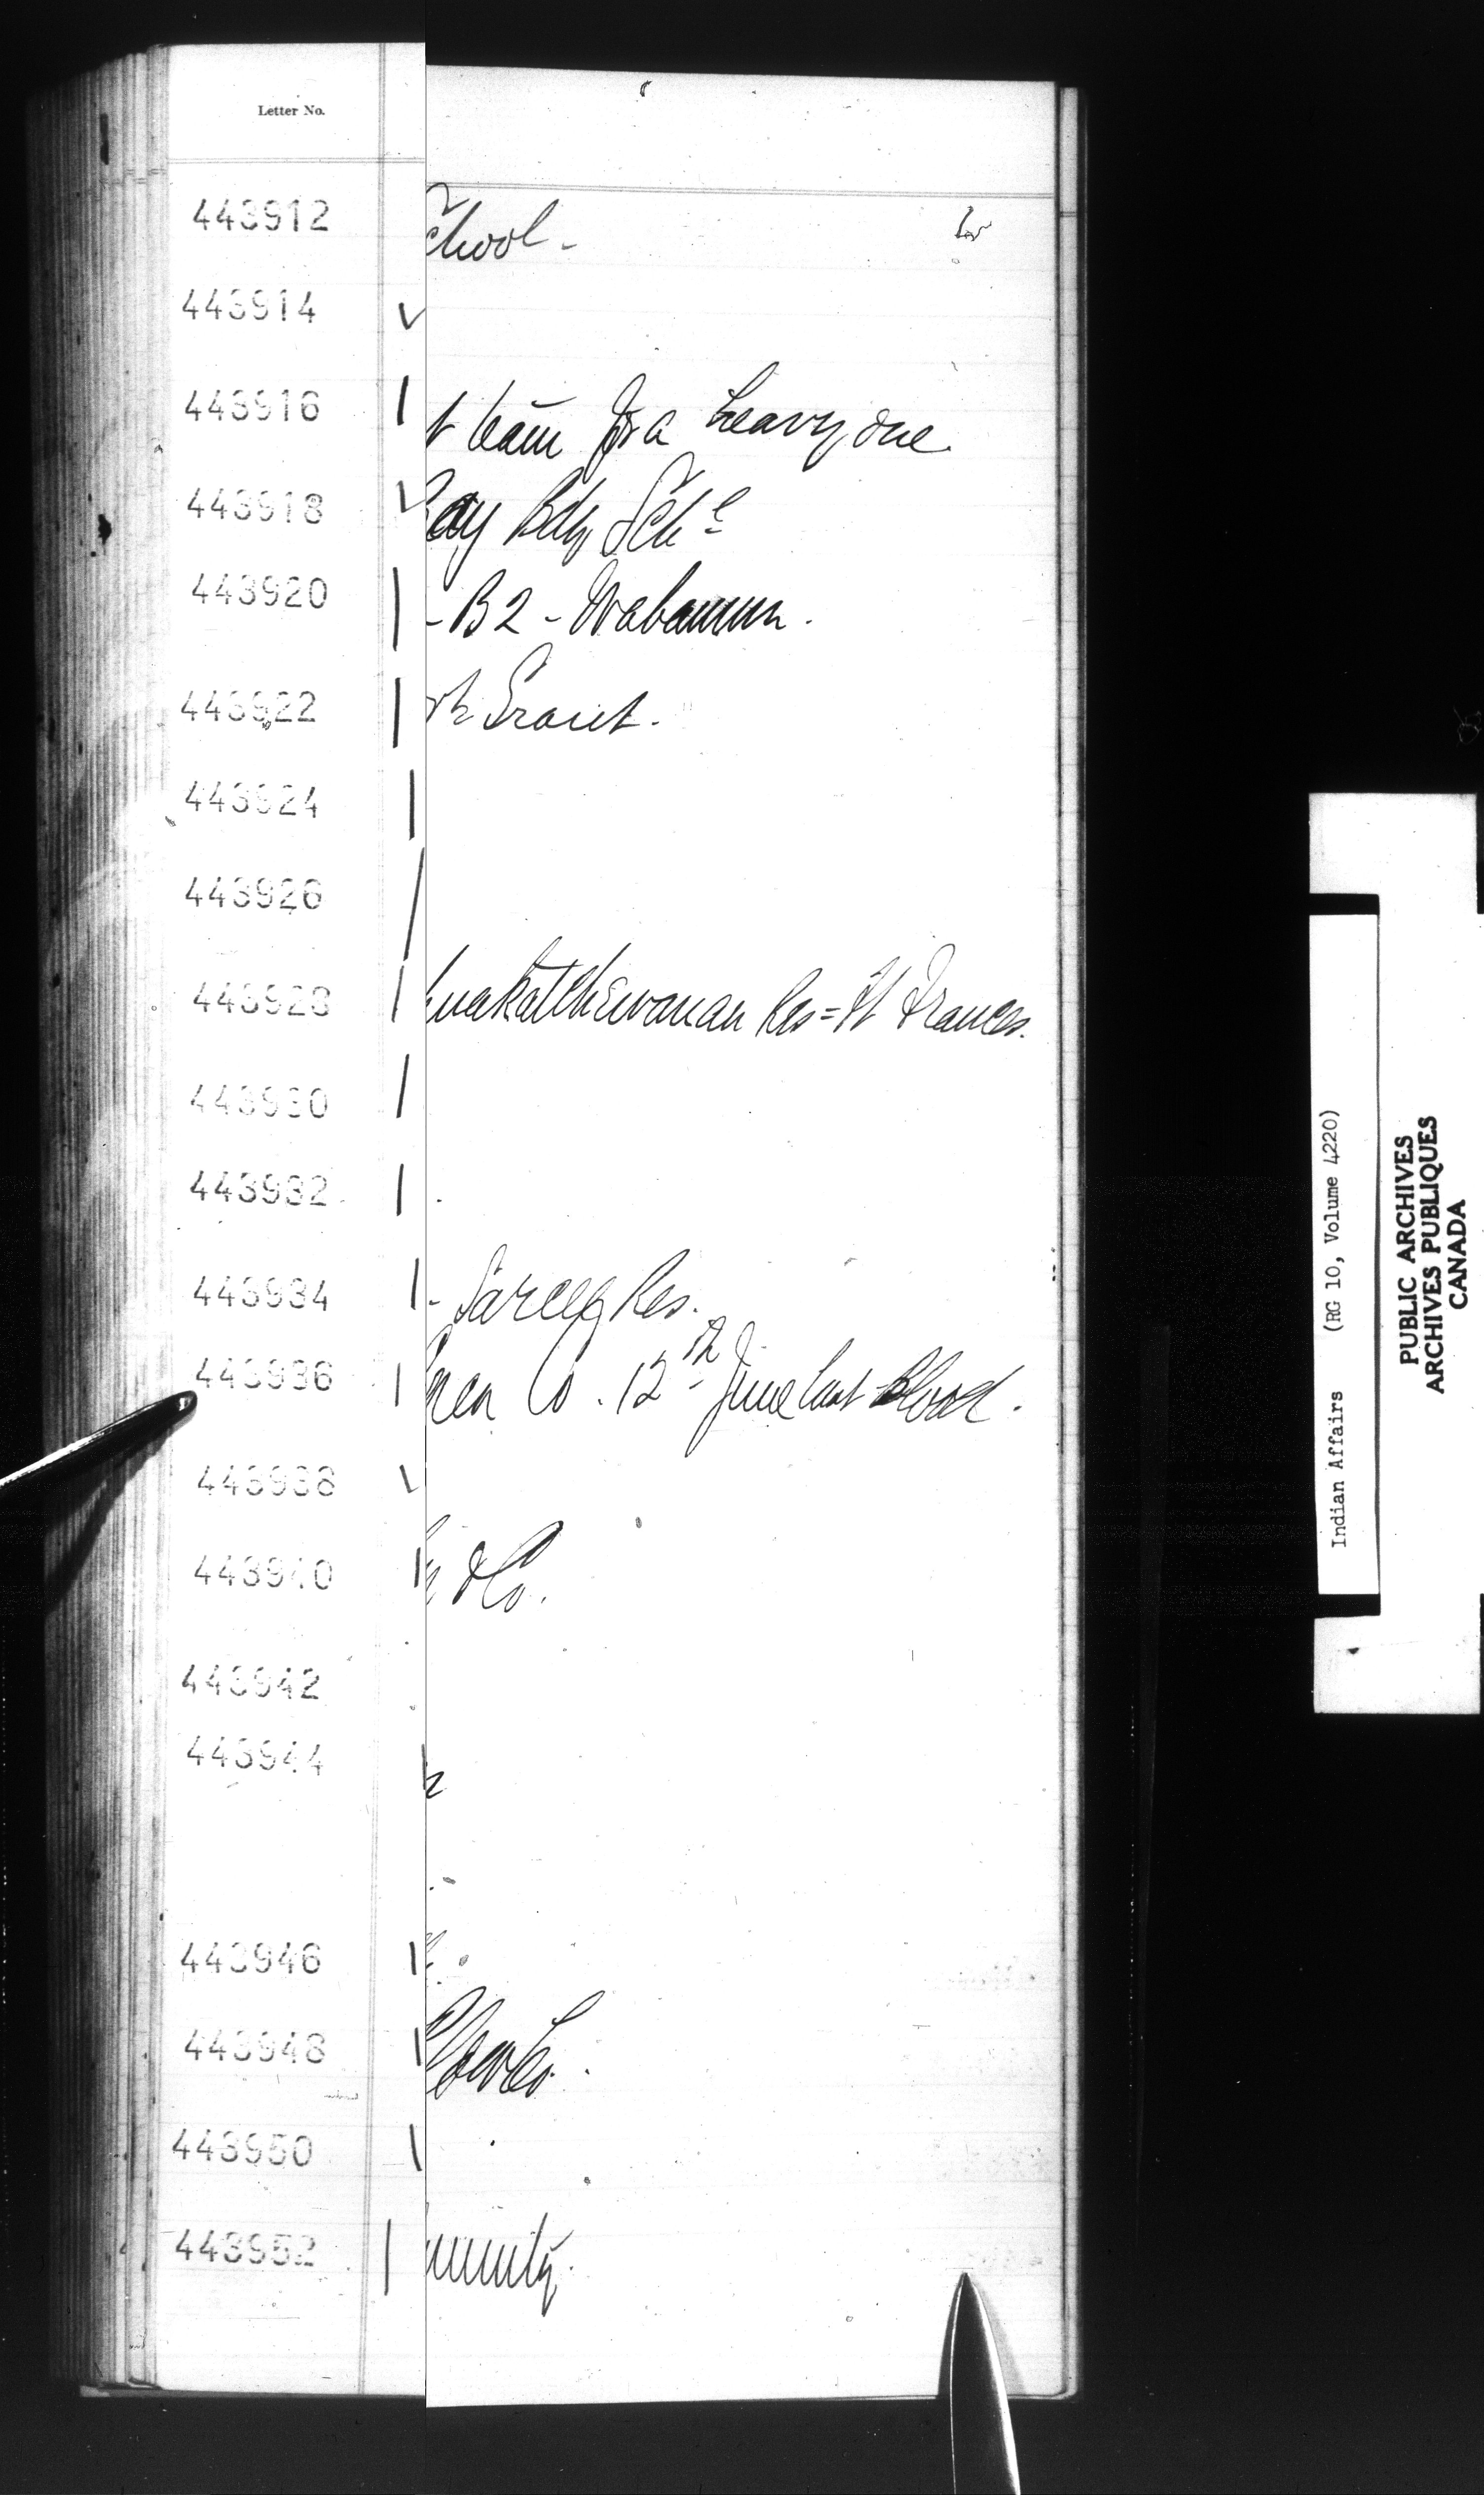 Letter No.
443912 chool -
443914
443916 team for a heavy one
443918 Bay Bdg Schl
443920 - B2 - Wabamun.
443922 Grant.
443924
443926
443928 Res = Ft Frances.
443930
443932
443934 - Sarcee Res.
443936 Co. 12th June last Blood.
443938
443940 & Co.
443942
443944
443946
443948 Co.
443950
443952 munity.
Indian Affairs (RG 10, Volume 4220)
PUBLIC ARCHIVES
ARCHIVES PUBLIQUES
CANADA